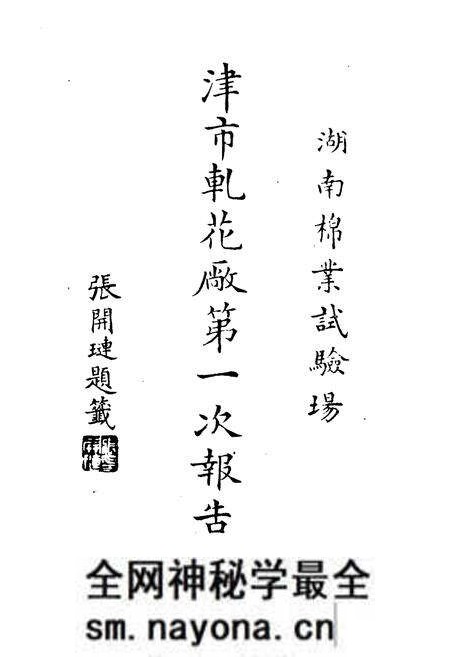 湖南棉業試驗場
津市軋花廠第一次報告
張開璉題籤
全网神秘学最全
sm.nayona.cn